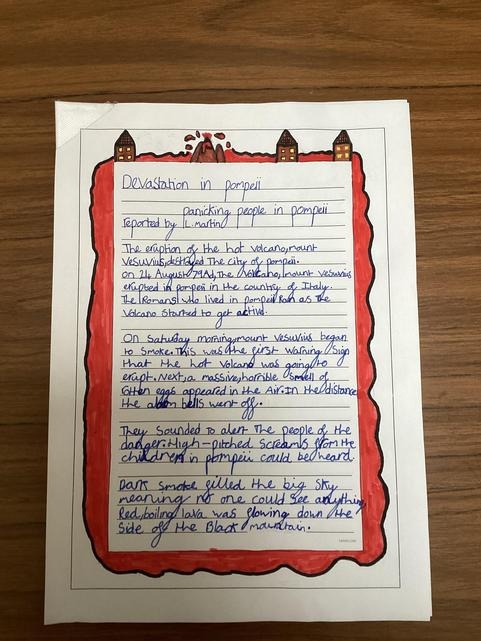 Devastation in pompeii
panicking people in pompeii
reported by L.Martin
The eruption of the hot Volcano,mount
Vesuvius,destroyed The city of pompeii.
on 24 August 79Ad,The Volcano, mount Vesuvius
erupted in pompeii in the country of Italy.
The Romans who lived in pompeii Ran as the
Volcano started to get active.
On Saturday morning,mount Vesuvius began
to Smoke.This was the first warning Sign
that the hot Volcano was going to
erupt. Next,a massive,horrible Smell of
eggs appeared in the Air.In the distance
the alarm bells went off.
They Sounded to alert The people of the
danger.High-pitched Screams from the
children in pompeii could be heard.
Dark Smoke filled the big Sky
meaning no one could See anything.
Red,boiling lava was flowing down the
Side of the Black mountain.